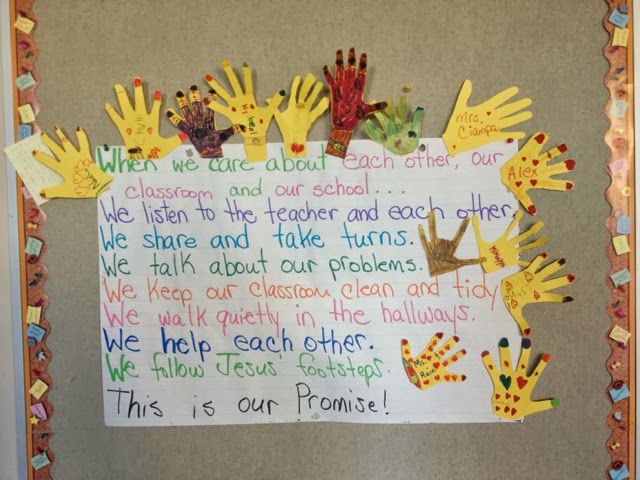 When we care about each other, our
classroom and our school...
We listen to the teacher and each other.
We share and take turns.
We talk about our problems.
We keep our classroom clean and tidy
We walk quietly in the hallways.
We help each other.
We follow Jesus' footsteps.
This is our Promise!
mrs. Ciampa
Alex
Ms. Rain